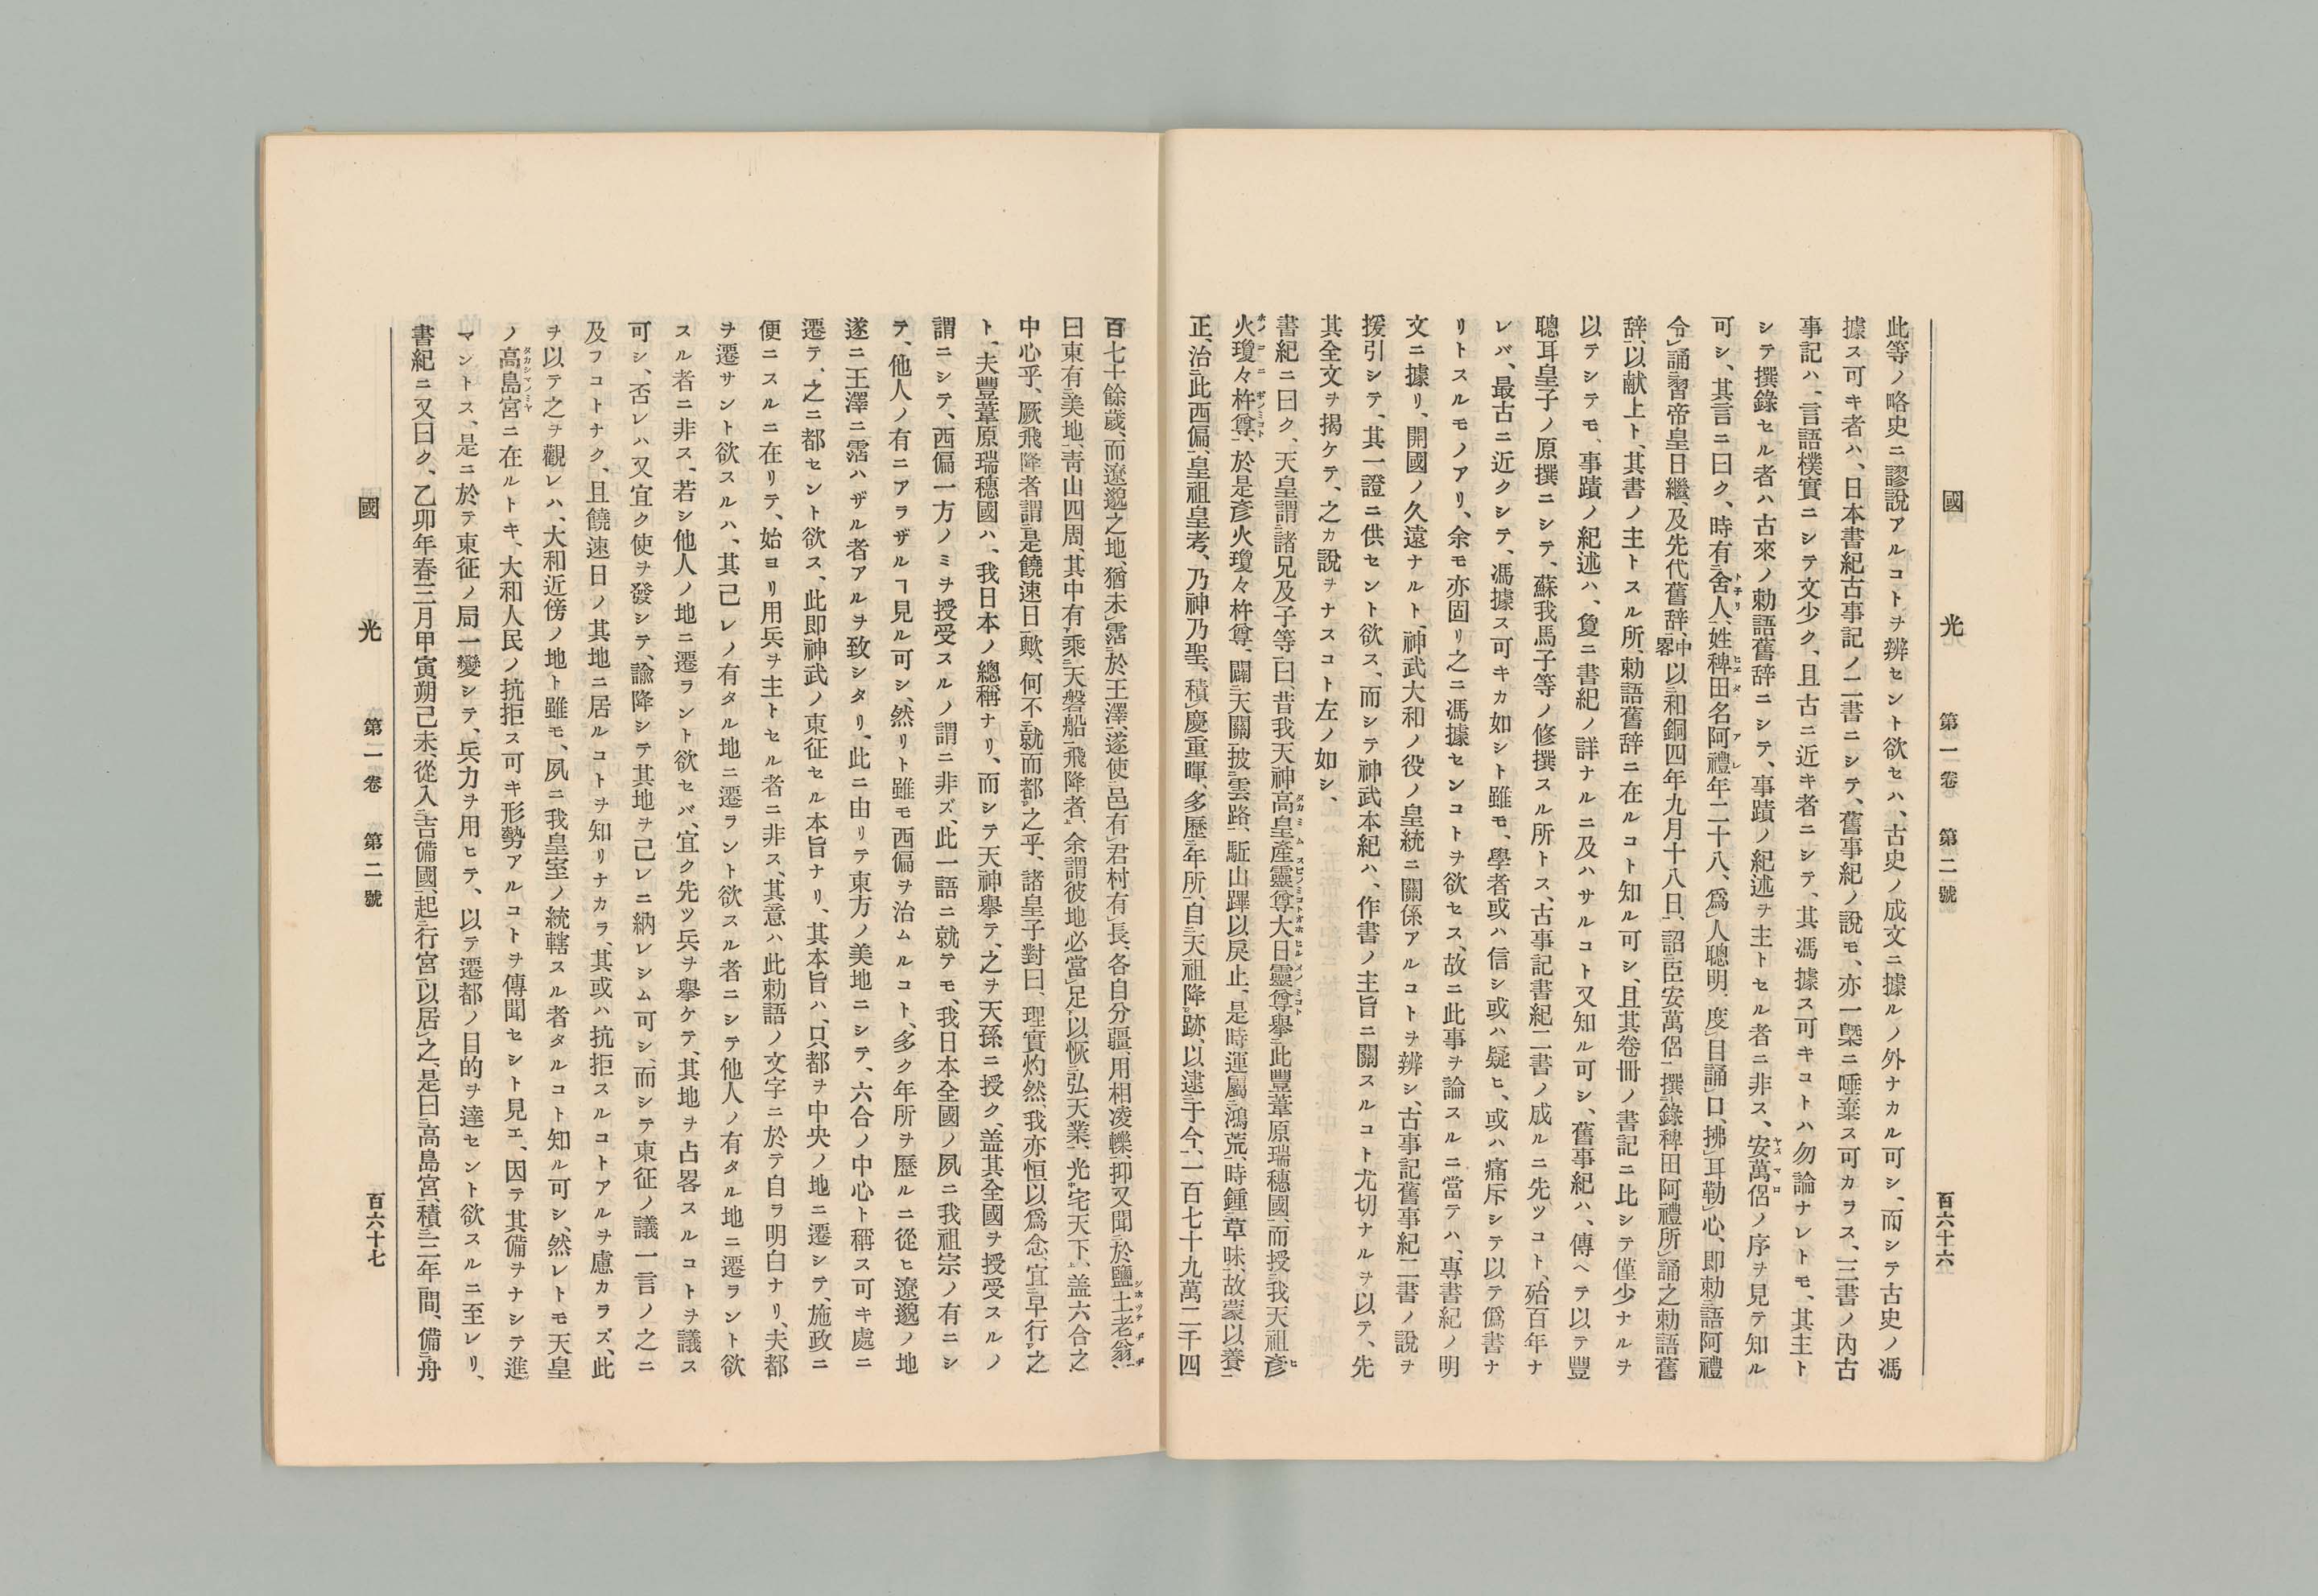 國光 第一卷 第二號 百六十六
此等ノ略史ニ謬說アルコトヲ辨セント欲セハ、古史ノ成文ニ據ルノ外ナカル可シ、而シテ古史ノ馮
據ス可キ者ハ、日本書紀古事記ノ二書ニシテ、舊事紀ノ說モ、亦一槩ニ唾棄ス可カラス、三書ノ內古
事記ハ、言語樸實ニシテ文少ク、且古ニ近キ者ニシテ、其馮據ス可キコトハ勿論ナレトモ、其主ト
シテ撰錄セル者ハ古來ノ勅語舊辞ニシテ、事蹟ノ紀述ヲ主トセル者ニ非ス、安萬侶ノ序ヲ見テ知ル
可シ、其言ニ曰ク、時有舍人、姓稗田名阿禮年二十八、爲人聰明、度目誦口、拂耳勒心、即勅語阿禮
令誦習帝皇日繼、及先代舊辞、中畧以和銅四年九月十八日、詔臣安萬侶撰錄稗田阿禮所誦之勅語舊
辞、以献上ト、其書ノ主トスル所、勅語舊辞ニ在ルコト知ル可シ、且其卷冊ノ書記ニ比シテ僅少ナルヲ
以テシテモ、事蹟ノ紀述ハ、敻ニ書紀ノ詳ナルニ及ハサルコト又知ル可シ、舊事紀ハ、傳ヘテ以テ豐
聰耳皇子ノ原撰ニシテ、蘇我馬子等ノ修撰スル所トス、古事記書紀二書ノ成ルニ先ツコト、殆百年ナ
レバ、最古ニ近クシテ、馮據ス可キカ如シト雖モ、學者或ハ信シ或ハ疑ヒ、或ハ痛斥シテ以テ僞書ナ
リトスルモノアリ、余モ亦固リ之ニ馮據センコトヲ欲セス、故ニ此事ヲ論スルニ當テハ、專書紀ノ明
文ニ據リ、開國ノ久遠ナルト、神武大和ノ役ノ皇統ニ關係アルコトヲ辨シ、古事記舊事紀二書ノ說ヲ
援引シテ、其一證ニ供セント欲ス、而シテ神武本紀ハ、作書ノ主旨ニ關スルコト尤切ナルヲ以テ、先
其全文ヲ揭ケテ、之カ說ヲナスコト左ノ如シ、
書紀ニ曰ク、天皇謂諸兄及子等曰、昔我天神高皇產靈尊大日靈尊擧此豐葦原瑞穗國、而授我天祖彥
火瓊々杵尊、於是彥火瓊々杵尊、闢天關披雲路、駈山蹕以戾止、是時運屬鴻荒、時鍾草昧、故蒙以養
正、治此西偏、皇祖皇考、乃神乃聖、積慶重暉、多歷年所、自天祖降跡、以逮于今、一百七十九萬二千四
百七十餘歲、而遼邈之地、猶未霑於王澤、遂使邑有君村有長、各自分疆、用相凌轢、抑又聞於鹽土老翁、
曰東有美地、靑山四周、其中有乘天磐船飛降者、余謂彼地必當足以恢弘天業、光宅天下、盖六合之
中心乎、厥飛降者謂是饒速日歟、何不就而都之乎、諸皇子對曰、理實灼然、我亦恒以爲念、宜早行之
ト、夫豐葦原瑞穗國ハ、我日本ノ總稱ナリ、而シテ天神擧テ、之ヲ天孫ニ授ク、盖其全國ヲ授受スルノ
謂ニシテ、西偏一方ノミヲ授受スルノ謂ニ非ズ、此一語ニ就テモ、我日本全國ノ夙ニ我祖宗ノ有ニシ
テ、他人ノ有ニアラザルヿ見ル可シ、然リト雖モ西偏ヲ治ムルコト、多ク年所ヲ歷ルニ從ヒ遼邈ノ地
遂ニ王澤ニ霑ハザル者アルヲ致シタリ、此ニ由リテ東方ノ美地ニシテ、六合ノ中心ト稱ス可キ處ニ
遷テ、之ニ都セント欲ス、此即神武ノ東征セル本旨ナリ、其本旨ハ、只都ヲ中央ノ地ニ遷シテ、施政ニ
便ニスルニ在リテ、始ヨリ用兵ヲ主トセル者ニ非ス、其意ハ此勅語ノ文字ニ於テ自ラ明白ナリ、夫都
ヲ遷サント欲スルハ、其己レノ有タル地ニ遷ラント欲スル者ニシテ他人ノ有タル地ニ遷ラント欲
スル者ニ非ス、若シ他人ノ地ニ遷ラント欲セバ、宜ク先ツ兵ヲ擧ケテ、其地ヲ占畧スルコトヲ議ス
可シ、否レハ又宜ク使ヲ發シテ、諭降シテ其地ヲ己レニ納レシム可シ、而シテ東征ノ議一言ノ之ニ
及フコトナク、且饒速日ノ其地ニ居ルコトヲ知リナカラ、其或ハ抗拒スルコトアルヲ慮カラズ、此
ヲ以テ之ヲ觀レハ、大和近傍ノ地ト雖モ、夙ニ我皇室ノ統轄スル者タルコト知ル可シ、然レトモ天皇
ノ高島宮ニ在ルトキ、大和人民ノ抗拒ス可キ形勢アルコトヲ傳聞セシト見エ、因テ其備ヲナシテ進
マントス、是ニ於テ東征ノ局一變シテ、兵力ヲ用ヒテ、以テ遷都ノ目的ヲ達セント欲スルニ至レリ、
書紀ニ又曰ク、乙卯年春三月甲寅朔己未、從入吉備國、起行宮以居之、是曰高島宮、積三年間、備舟
國光 第一卷 第二號 百六十七